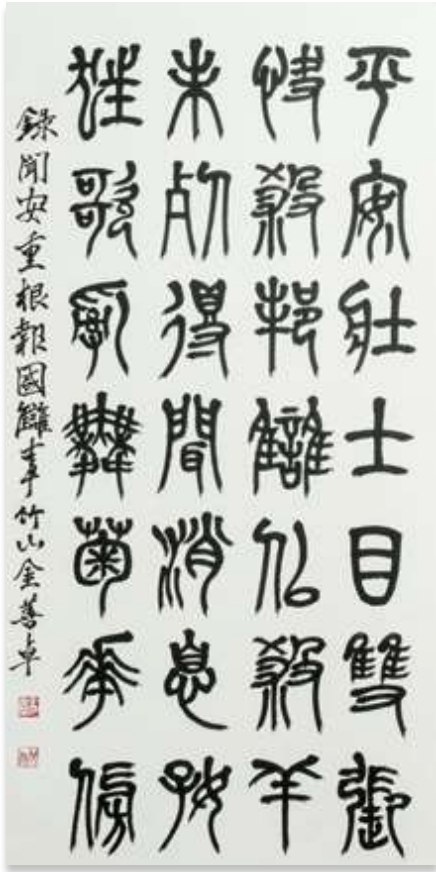 平安壯士目雙張
快殺邦讎似殺羊
未死得聞消息好
狂歌亂舞菊花傍
錄聞安重根報國讎事 竹山金善卓